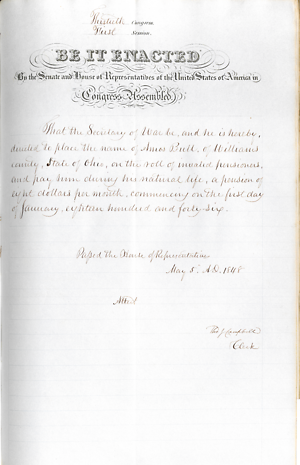 Thirtieth Congress
First Session
BE IT ENACTED
By the Senate and House of Representatives of the United States of America in
Congress Assembled
That the Secretary of War be, and he is hereby,
directed to place the name of Amos of Williams
county, State of Ohio, on the roll of invalid pensioners,
and pay him during his natural life, a pension of
eight dollars per month, commencing on the first day
of January, eighteen hundred and forty six.
Passed the House of Representatives
May 5, A.D. 1848
Attest
Tho J. Campbell
Clerk